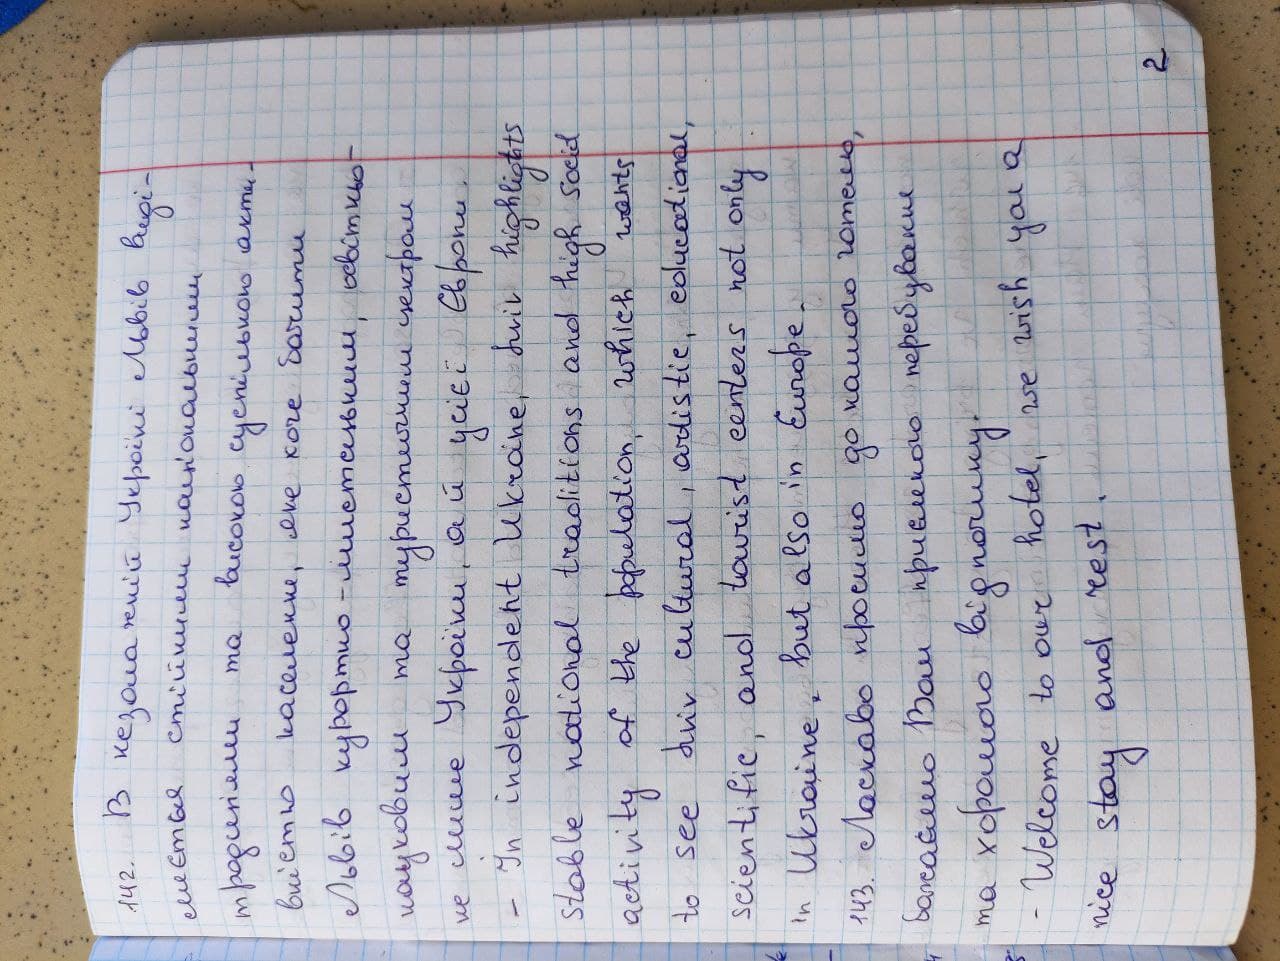 142. В незалежній Україні Львів виді-
мється стійкими національними
традиціями та високою суспільною акти-
вністю населення, яке хоче бачити
Львів курортно-мистецьким, освітньо-
науковим та туристичним центром
не лише України, а й усієї Європи.
- In independent Ukraine, Lviv highlights
stable national traditions and high social
activity of the population, which wants
to see Lviv cultural, artistic, educational,
scientific, and tourist centers not only
in Ukraine, but also in Europe.
143. Ласкаво просимо до нашого готелю,
бажаємо Вам приємного перебування
та хорошого відпочинку.
- Welcome to our hotel, we wish you a
nice stay and rest.
2